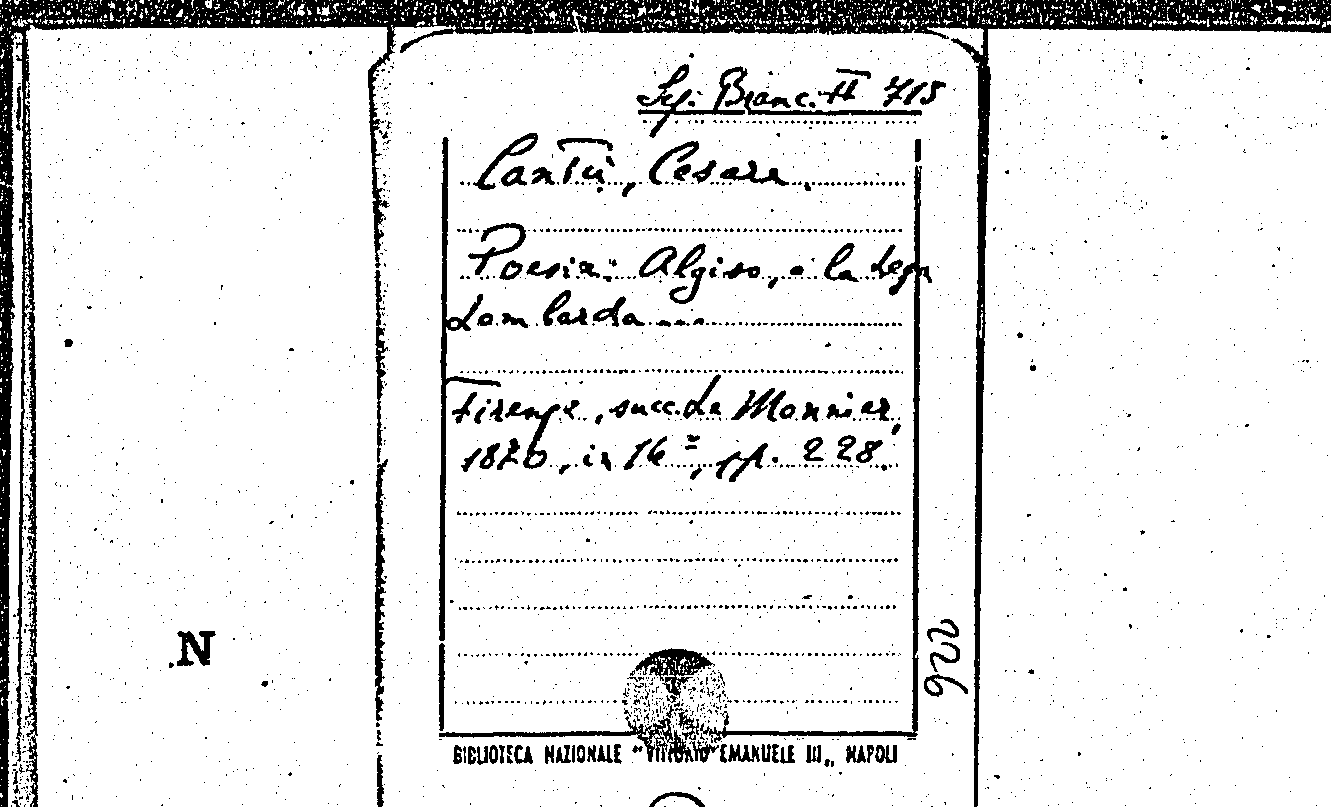 Sg. Branc. II 715
Cantù, Cesare.
Poesie: Algiso, o la Lega
Lombarda ....
Firenze, succ. Le Monnier,
1870, in 16º, pp. 228.
N
BIBLIOTECA NAZIONALE "VITTORIO EMANUELE III„ NAPOLI